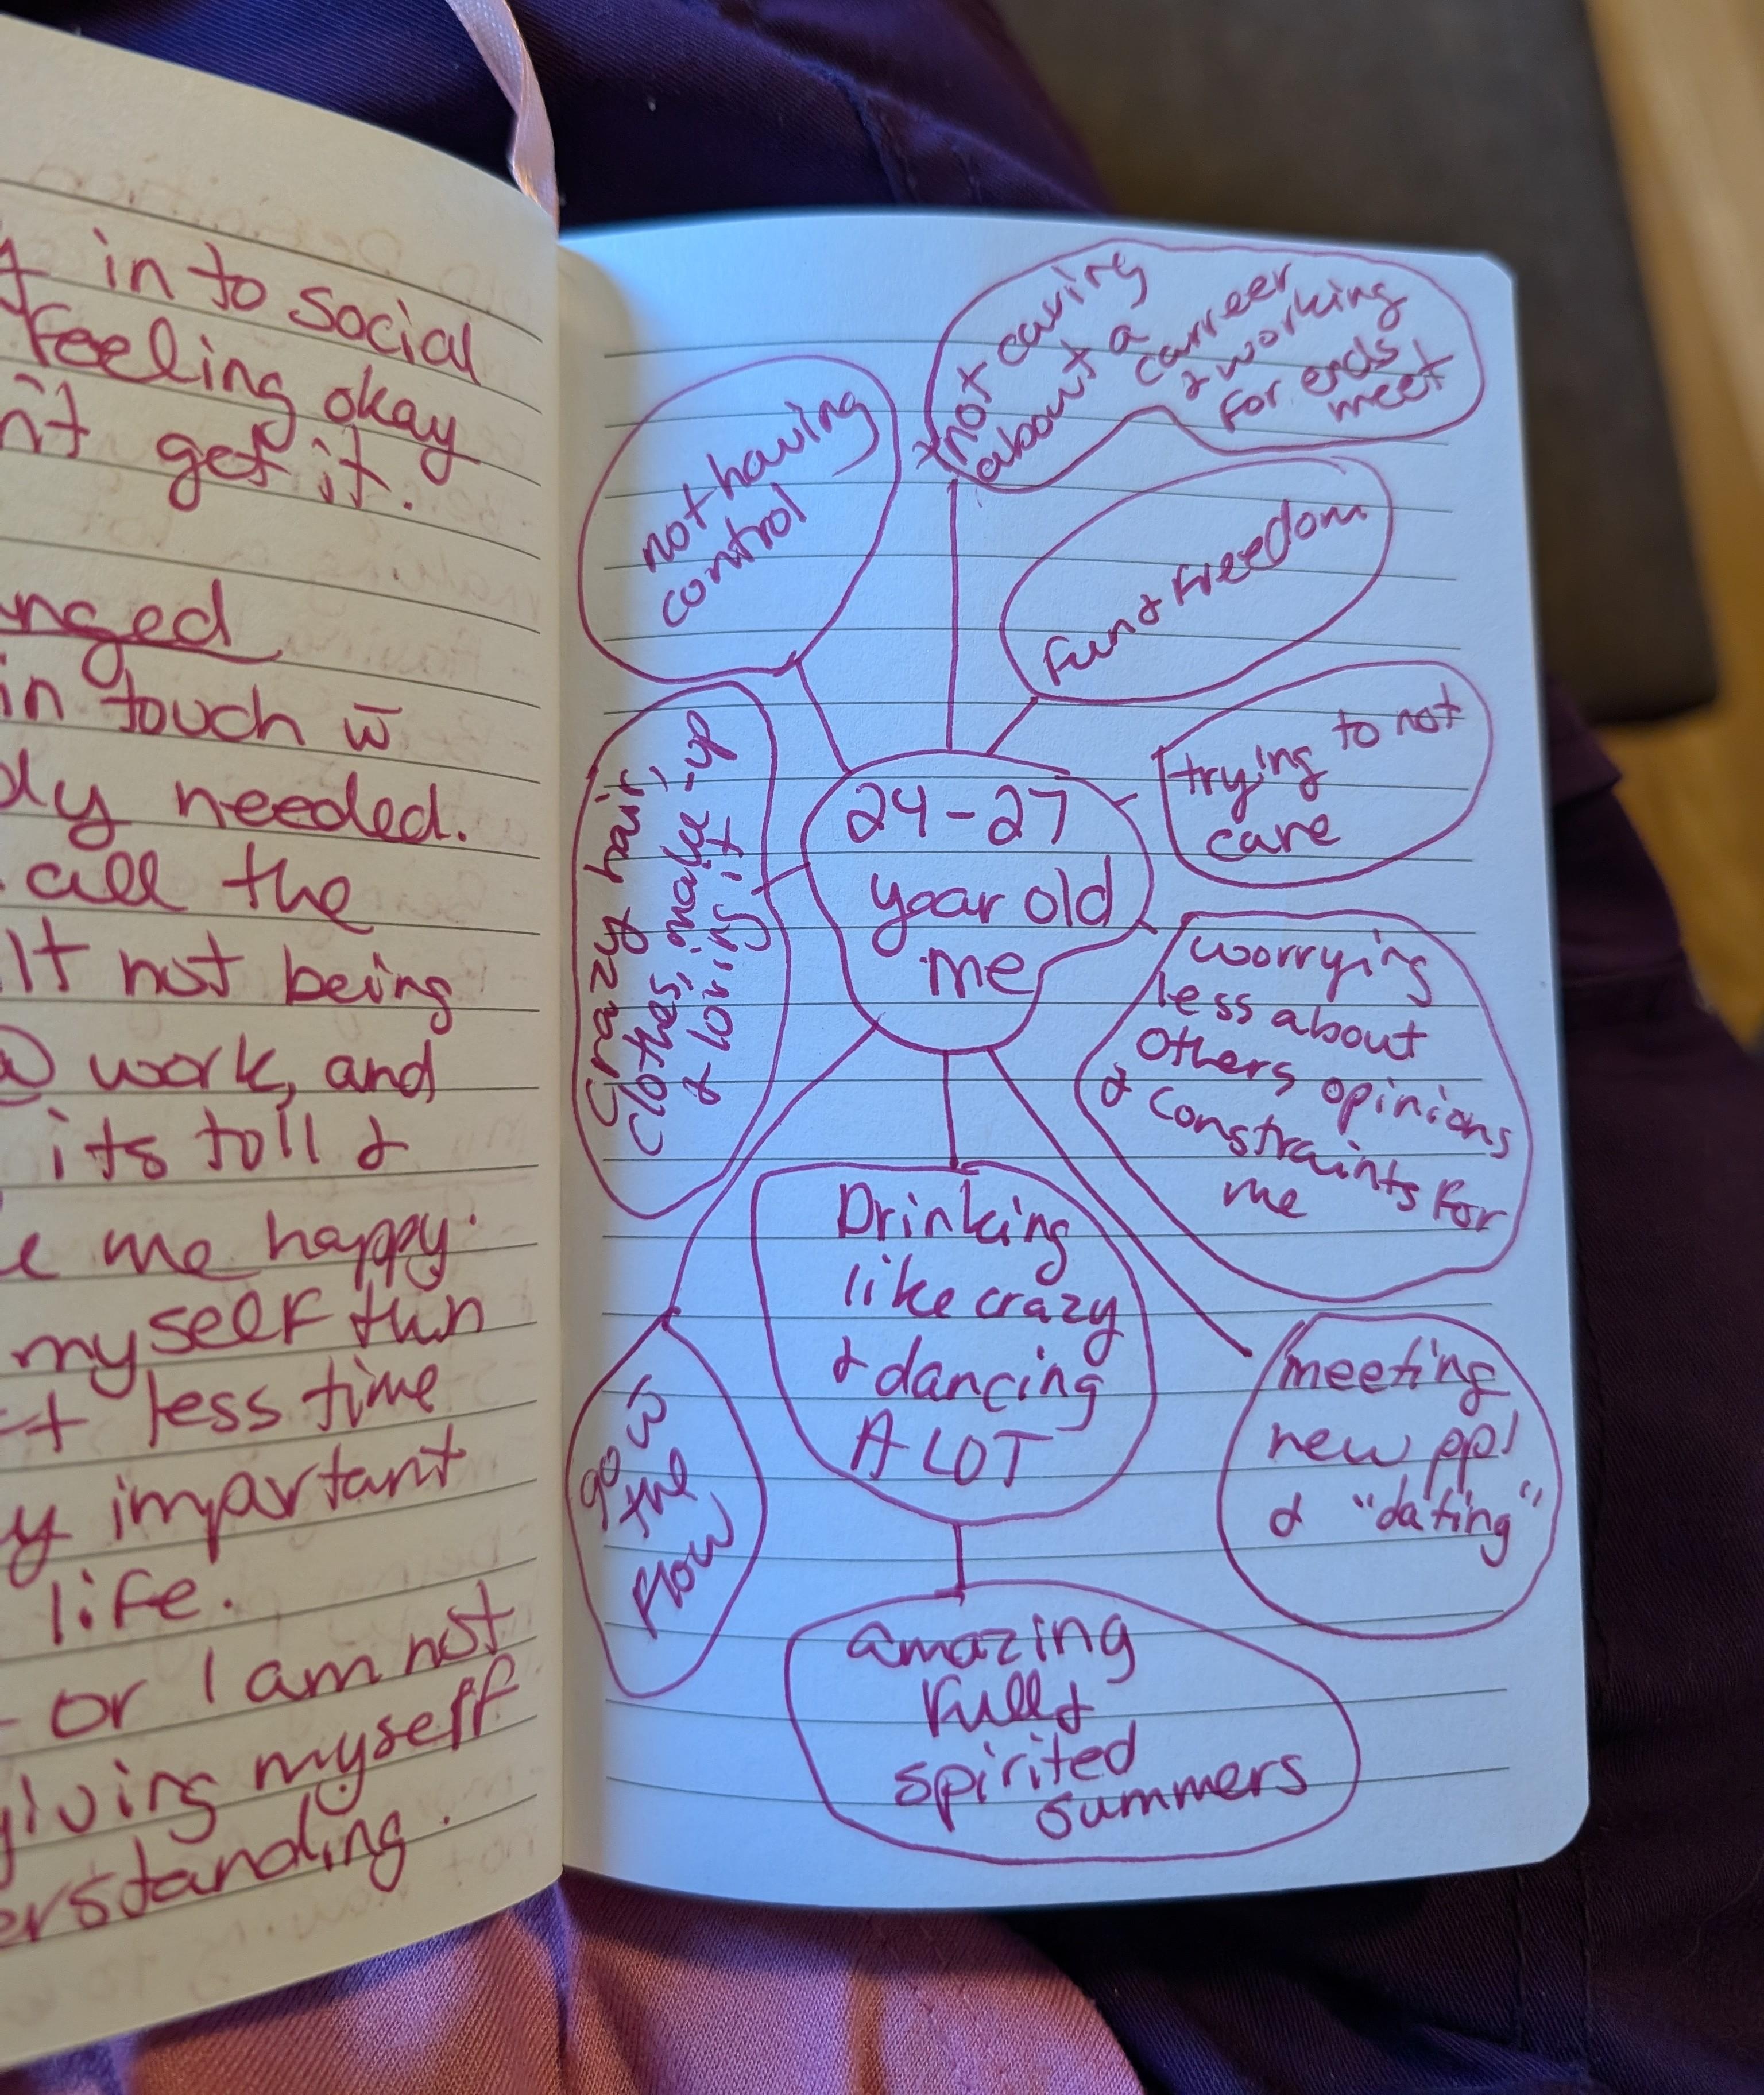 in to social
feeling okay
get it.
in touch w̅
needed.
all the
not being
work, and
its toll &
me happy.
myself fun
less time
important
life.
or I am not
giving myself
not having
control
not caring
about a
carreer
& working
for ends
meet
Fun & Freedom
trying to not
care
24-27
year old
me
crazy hair,
clothes, make-up
& loving it
worrying
less about
others opinions
& constraints for
me
Drinking
like crazy
& dancing
A LOT
go w
the
flow
meeting
new ppl
& "dating"
amazing
full &
spirited
summers